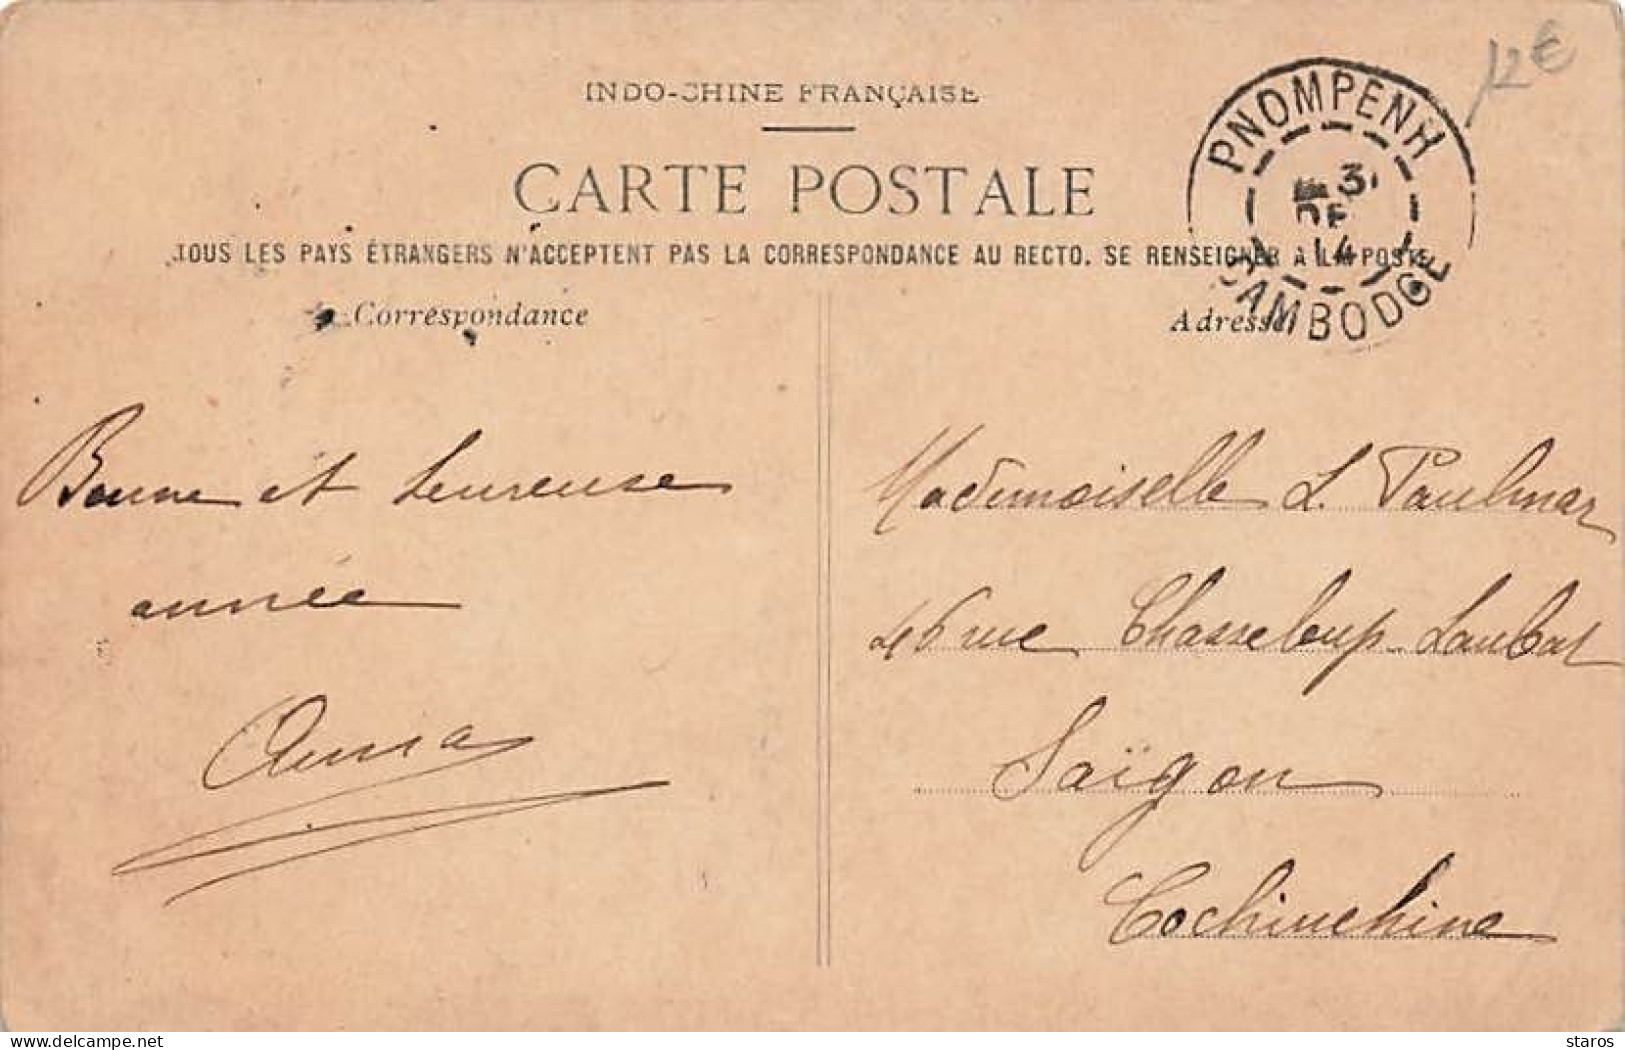 12€
INDO-CHINE FRANÇAISE
CARTE POSTALE
TOUS LES PAYS ÉTRANGERS N'ACCEPTENT PAS LA CORRESPONDANCE AU RECTO. SE RENSEIGNER A LA POSTE
PNOMPENH
31
DE
14
CAMBODGE
Correspondance
Adresse
Bonne et heureuse
année
Anna
Mademoiselle L. Paulmar
46 rue Chasseloup-Laubat
Saïgon
Cochinchine
delcampe.net
staros